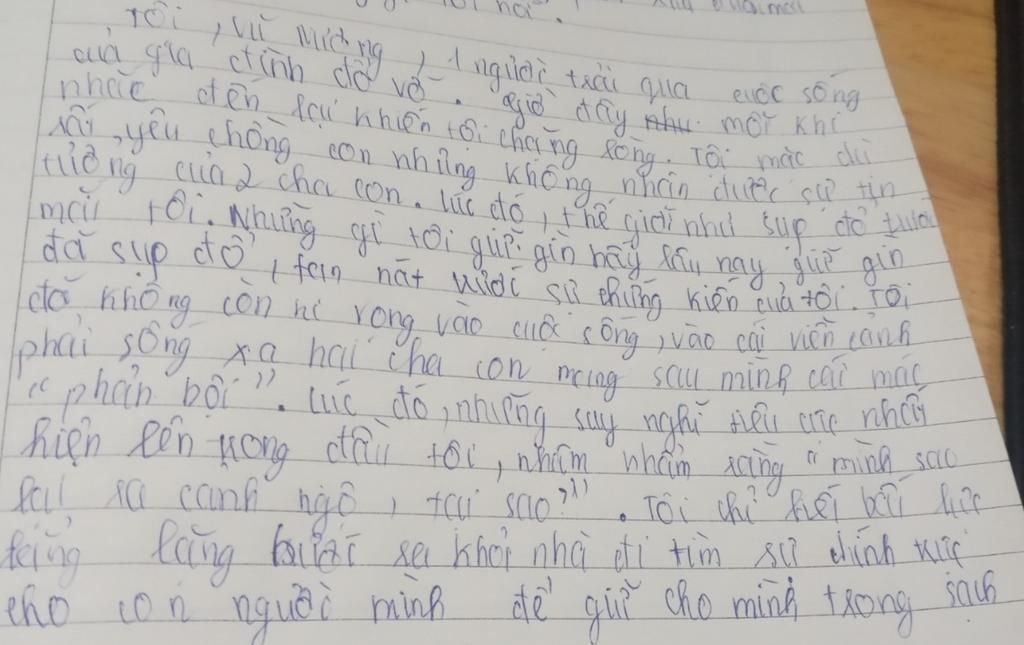 Tôi, vũ nương, 1 người trải qua cuộc sống
của gia đình đổ vỡ. Giờ đây mỗi khi
nhắc đến lại khiến tôi chạng lòng. Tôi mặc dù
rất yêu chồng con nhưng không nhận được sự tin
tưởng của 2 cha con. lúc đó, thế giới như sụp đổ
tôi. Những gì tôi giữ gìn bấy lâu nay giữ gìn
đã sụp đổ, tan nát dưới sự chứng kiến của tôi. Tôi
đã không còn hi vọng vào cuộc sống, vào cái viễn cảnh
phải sống xa hai cha con mang sau mình cái mác
"phản bội". lúc đó, những suy nghĩ tiêu cực
hiện lên trong đầu tôi, nhẩm rằng "mình sao
lại ra cảnh ngộ, tại sao?". Tôi chỉ biết bất lực
lẳng bước ra khỏi nhà đi tìm sự
cho con người mình để giữ cho mình trong sạch